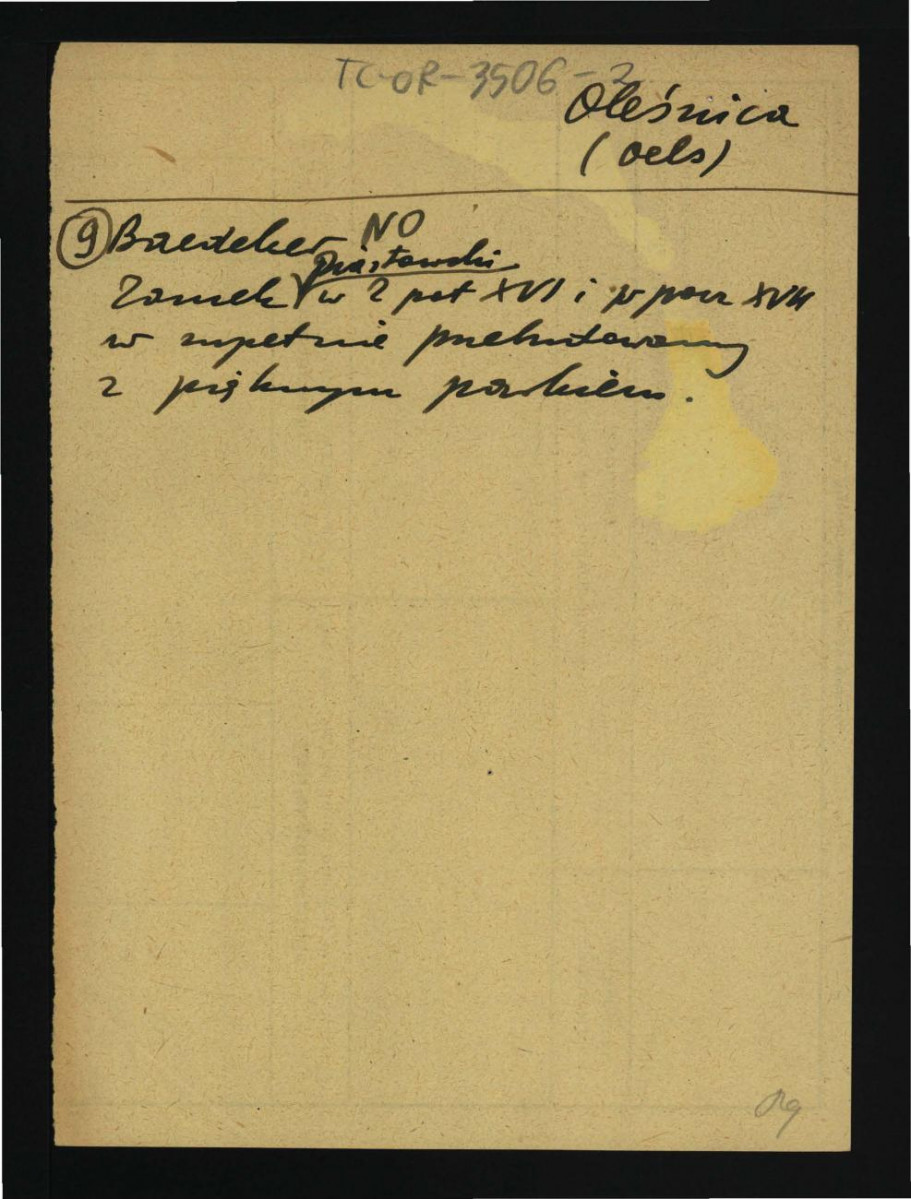 TC-OR-3506-2
Oleśnica
(Oels)
9 Baedeker NO
piastowski
Zamek w 2 poł XVI i w pocz XVII
w zupełnie przebudowany
z pięknym parkiem.